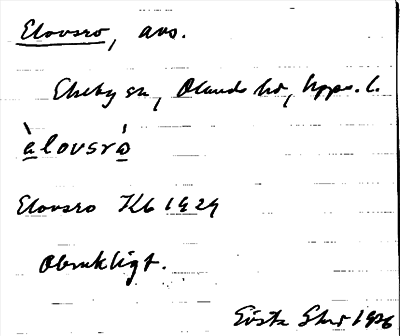 Elovsro, avs.
Ekeby sn, Olands hd, Upps. l.
àlovsró
Elovsro Kb 1929
Obrukligt.
Gösta Ehr 1936